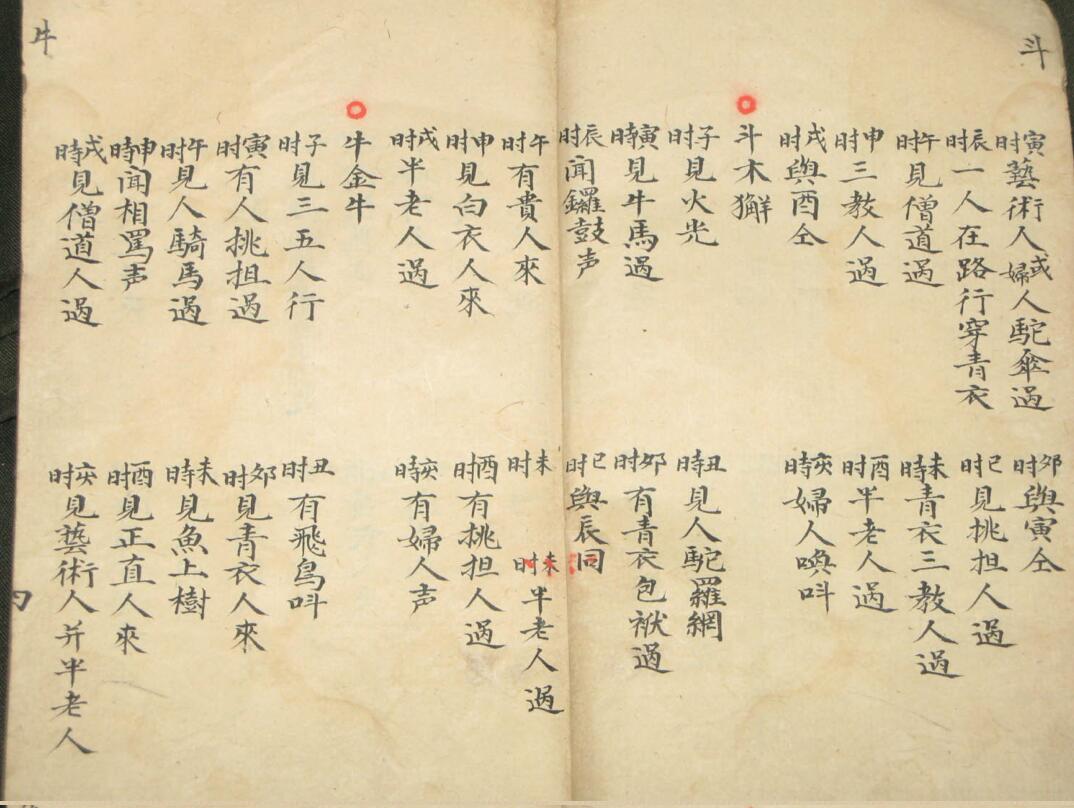 斗
寅時藝術人或婦人駝傘過
卯时與寅仝
辰时一人在路行穿青衣
巳时見挑担人過
午时見僧道過
未時青衣三教人過
申时三教人過
酉时半老人過
戌时與酉仝
亥時婦人喚呌
斗木獬
子时見火光
丑時見人駝羅網
寅時見牛馬過
卯时有青衣包袱過
辰时聞鑼鼓声
巳时與辰同
午时有貴人來
未时
未时半老人過
申时見白衣人來
酉时有挑担人過
戌时半老人過
亥時有婦人声
牛金牛
子时見三五人行
丑时有飛鳥呌
寅时有人挑担過
卯时見青衣人來
午时見人騎馬過
未時見魚上樹
申時聞相罵声
酉时見正直人來
戌時見僧道人過
亥时見藝術人并半老人
牛